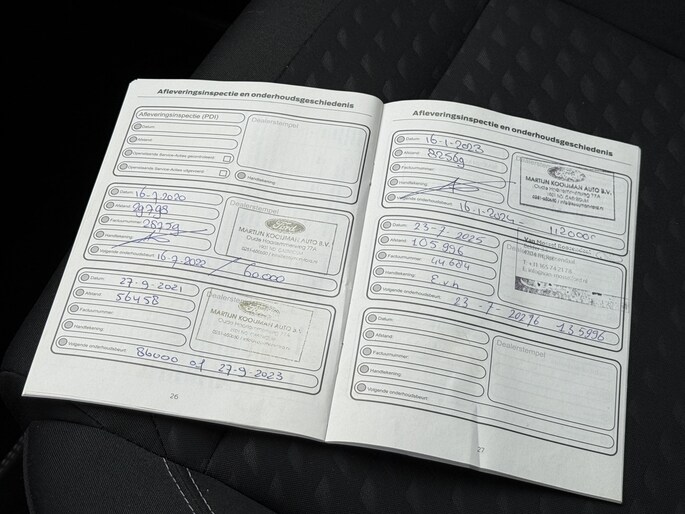 Afleveringsinspectie en onderhoudsgeschiedenis
Afleveringsinspectie (PDI)
Datum:
Afstand:
Openstaande Service-Acties gecontroleerd:
Openstaande Service-Acties uitgevoerd:
Dealerstempel
Handtekening:
Datum: 16-7-2020
Afstand:
Factuurnummer:
Handtekening:
Volgende onderhoudsbeurt: 16-7-2020 / 60.000
Ford
MARTIJN KOOIJMAN AUTO B.V.
Datum: 27-9-2021
Afstand: 56458
Factuurnummer:
Handtekening:
Volgende onderhoudsbeurt: 86000 of 27-9-2023
Dealerstempel
MARTIJN KOOIJMAN AUTO B.V.
26
Afleveringsinspectie en onderhoudsgeschiedenis
Datum: 16-1-2023
Afstand: 82569
Factuurnummer:
Handtekening:
Volgende onderhoudsbeurt: 16-1-2024 - 112000
Dealerstempel
MARTIJN KOOIJMAN AUTO B.V.
Datum: 23-7-2025
Afstand: 105996
Factuurnummer: 44664
Handtekening: E.v.h
Volgende onderhoudsbeurt: 23-7-2026 135996
Datum:
Afstand:
Factuurnummer:
Handtekening:
Volgende onderhoudsbeurt:
Dealerstempel
27